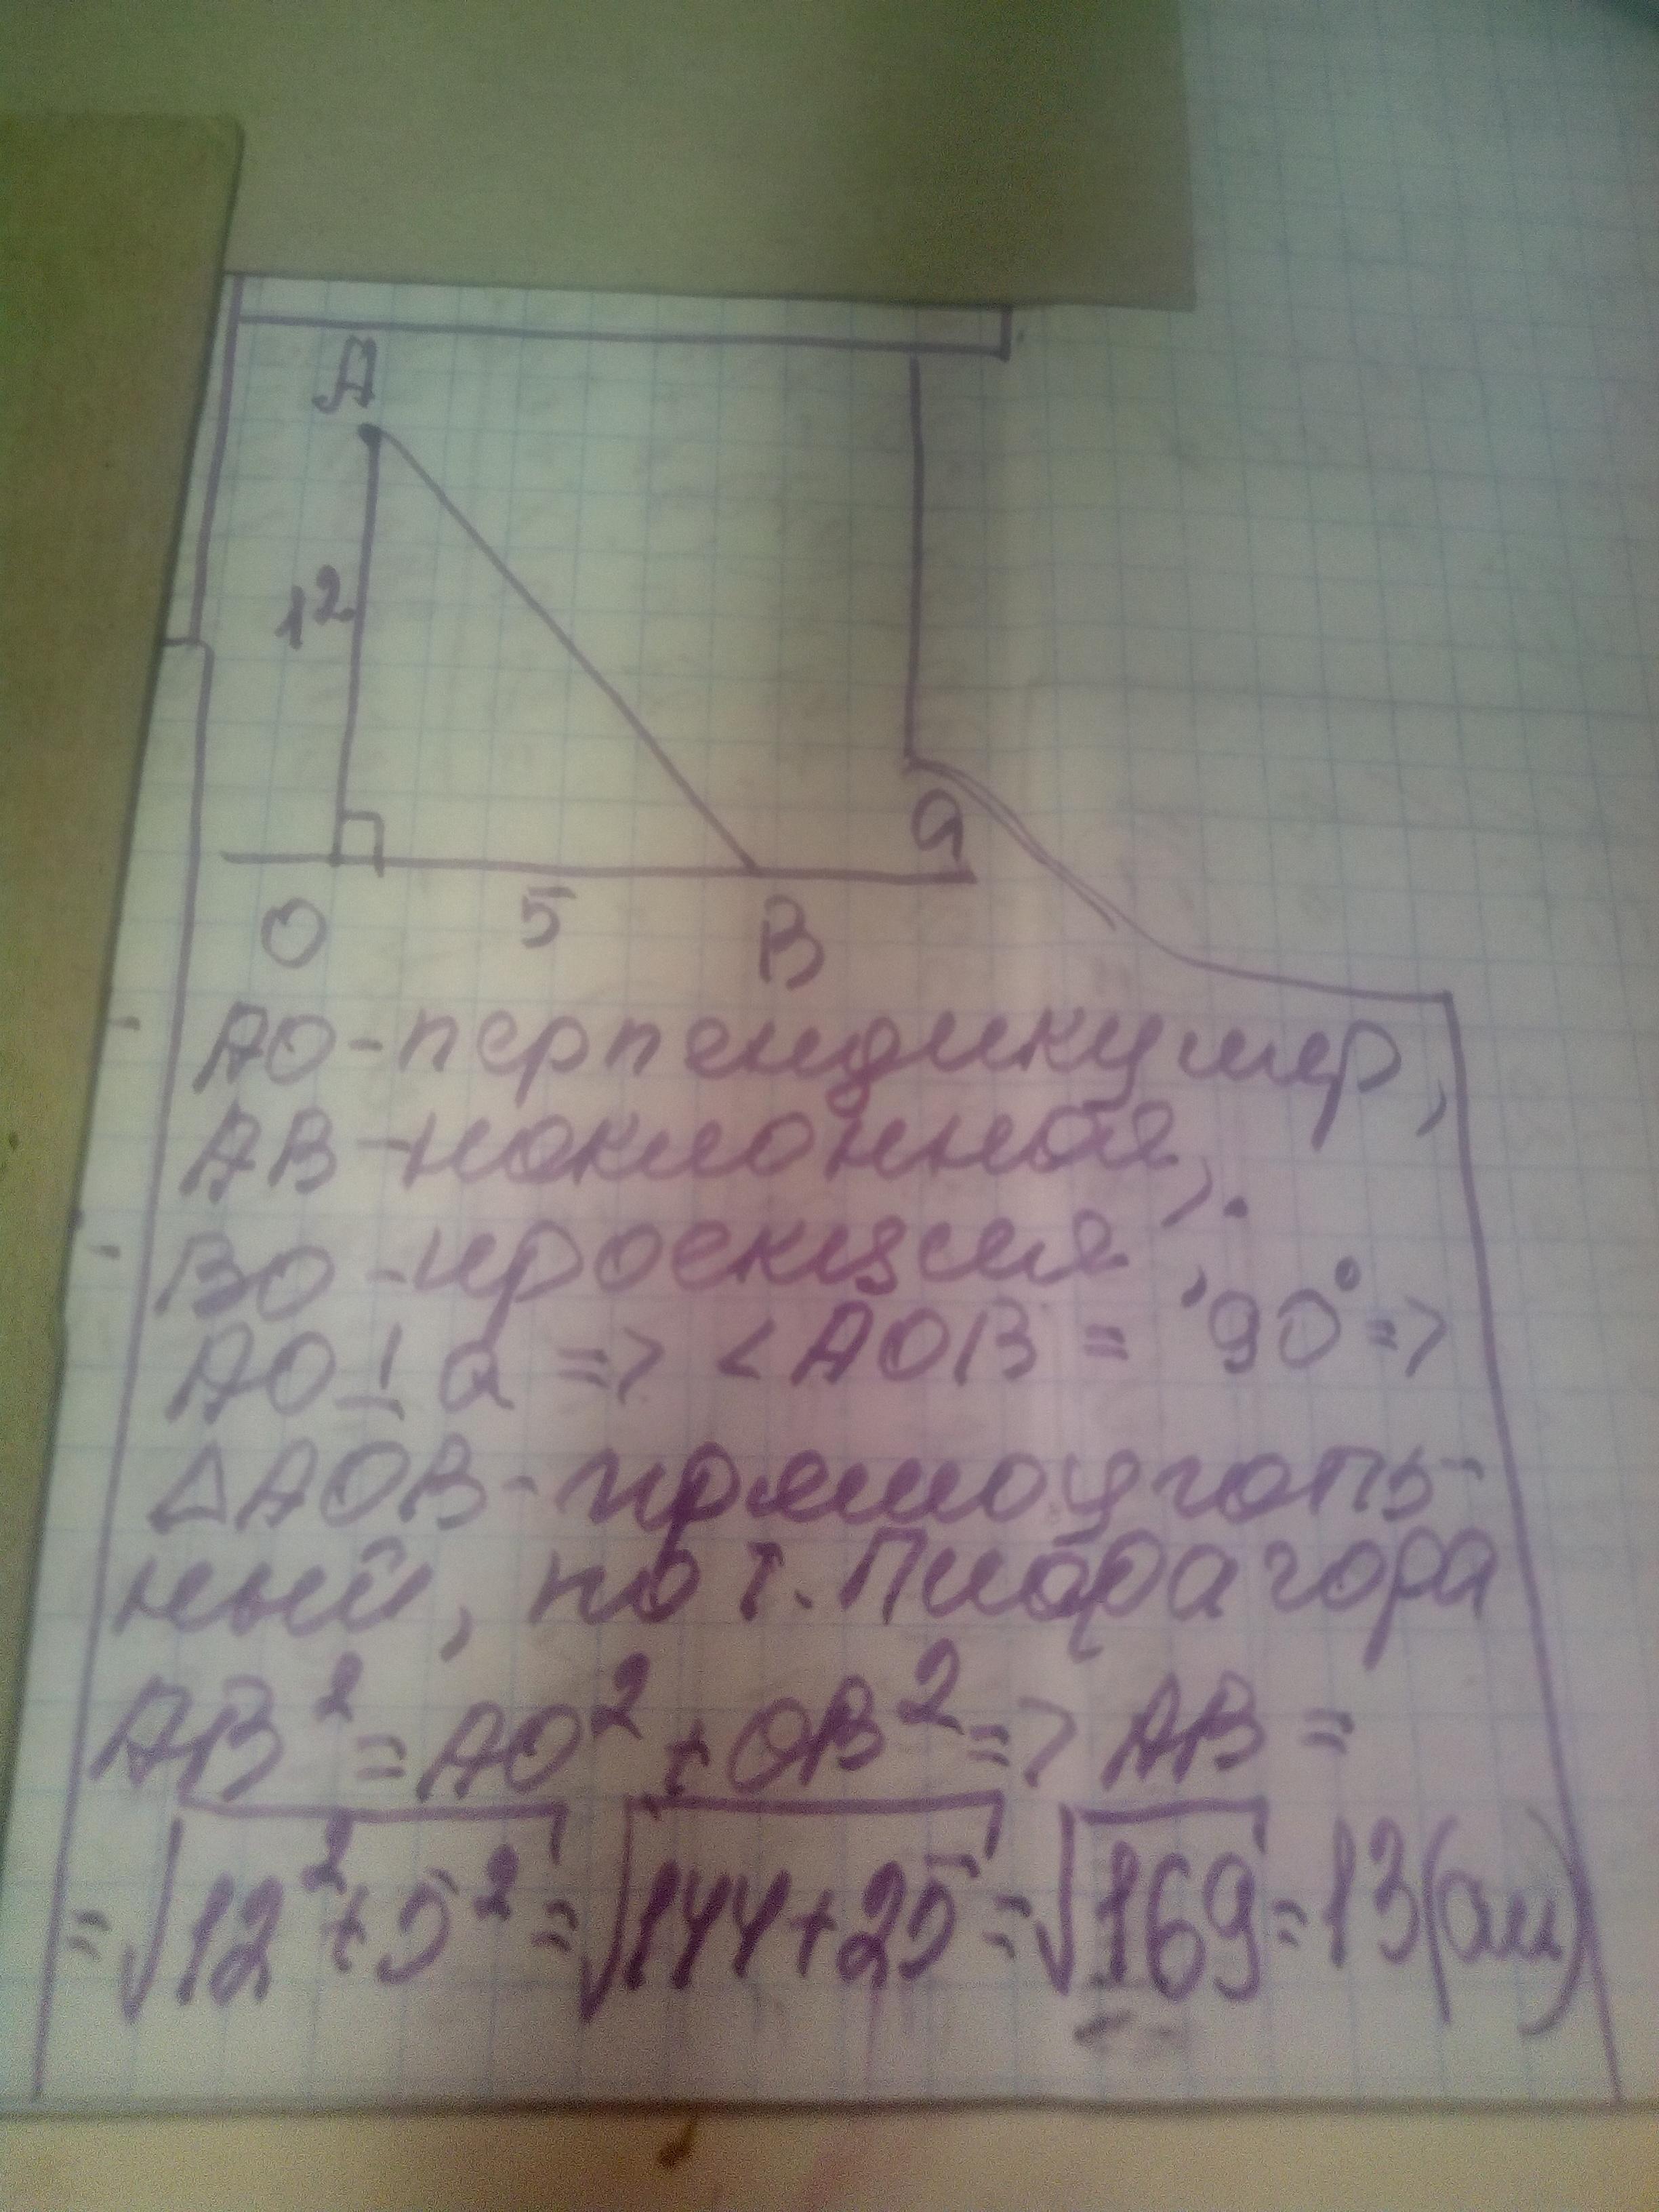 A
12
a
O 5 B
AO - перпендикуляр,
AB - наклонная,
BO - проекция,
AO ⊥ a => <AOB = 90° =>
△AOB - прямоуголь-
ный, по т. Пифагора
AB² = AO² + OB² => AB =
= √12² + 5² = √144 + 25 = √169 = 13 (см)